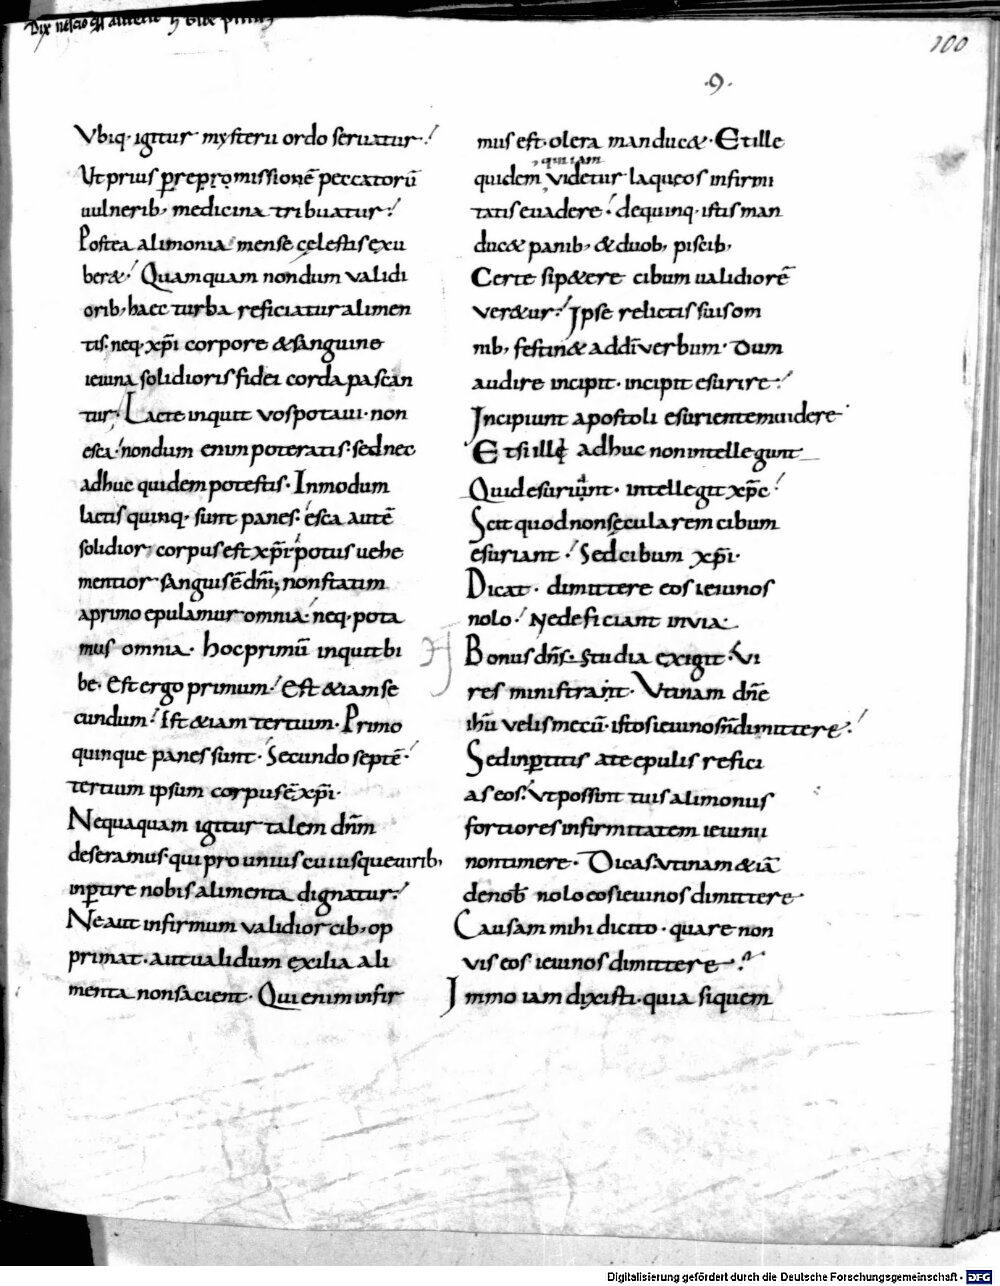 100
·9·
Vbiq· igitur mysterii ordo seruatur·!
Ut prius p̱ rep̱romissionē peccatorū
uulnerib; medicina tribuatur!
Postea alimonia mense cęlestis exu
ber&! Quamquam nondum validi
orib; haec turba reficiatur alimen
tis· neq· xp̄i corpore & sanguine
ieiuna solidioris fidei corda pascan
tur· Lacte inquit vos potaui· non
esca! nondum enim poteratis· sed nec
adhuc quidem potestis· In modum
lactis quinq· sunt panes· esca autē
solidior; corpus est xp̄i potus uehe
mentior sanguis ē dn̄i; non statim
a primo epulamur omnia! neq· pota
mus omnia· hoc primū inquit bi
be· Est ergo primum! Est & iam se
cundum! Est & iam tertium· Primo
quinque panes sunt· Secundo septē·
tertium ipsum corpus ē xp̄i·
Nequaquam igitur talem dn̄m
deseramus· qui pro unius cuiusque uirib;
inp̱tire nobis alimenta dignatur!
Ne aut infirmum validior cib; op
primat· aut ualidum exilia ali
menta non sacient· Qui enim infir
mus est· olera manduc&· Et ille
quiiam
quidem, videtur laqueos infirmi
tatis euadere! de quinq· istis man
duc& panib; & duob; piscib;
Certe si p&ere cibum ualidiorē
ver&ur! Ipse relictis suis om
nib; festin& ad dī verbum· Dum
audire incipit· incipit esurire!
Incipiunt apostoli esurientem uidere·
Et si illę adhuc non intellegunt
Quid esuriunt· intellegit xp̄c!
Scit quod non sęcularem cibum
esuriant! Sed cibum xp̄i·
Dicat· dimittere eos ieiunos
nolo! Ne deficiant in via·
Bonus dn̄s· studia exigit· Vi
res ministrant· Vtinam dn̄e
ihū velis mecū· istos ieiunos n̄ dimittere!
Sed inp̱titis a te epulis refici
as eos! Vt possint tuis alimoniis
fortiores infirmitatem ieiunii
non timere· Dicas· utinam & iā
de nob̄ nolo eos ieiunos dimittere
Causam mihi dicito· quare non
vis eos ieiunos dimittere?
Immo iam dixisti· quia si quem
Digitalisierung gefördert durch die Deutsche Forschungsgemeinschaft - DFG